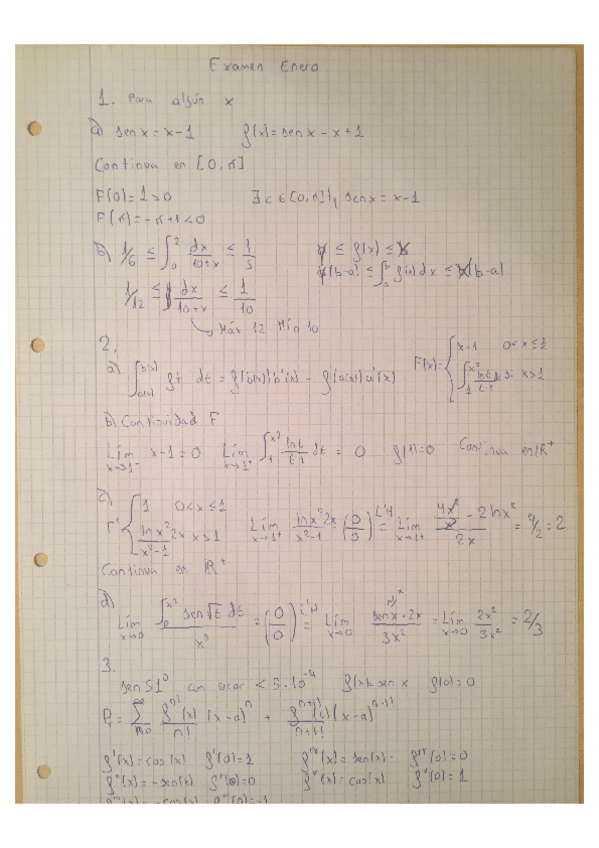 Examen Enero
1. Para algún x
a) sen x = x-1 f(x) = sen x - x + 1
Continua en [0, π]
F(0) = 1 > 0 ∃ c ∈ [0, π] / sen x = x-1
F(π) = -π + 1 < 0
b) 1/6 ≤ ∫₀² dx/(10+x) ≤ 1/5 ≤ f(x) ≤
(b-a) ≤ ∫ₐᵇ f(x) dx ≤ (b-a)
1/12 ≤ dx/(10+x) ≤ 1/10
Máx 12 Mín 10
2.
a) ∫ dt = f(b(x)) b'(x) - f(a(x)) a'(x) F(x) = { x-1 0<x≤1
∫₁^(x²) ln t/(t-1) x>1
b) Continuidad F
Lím x→1⁻ x-1 = 0 Lím x→1⁺ ∫₁^(x²) ln t/(t-1) dt = 0 f(1) = 0 Continua en ℝ⁺
c) F' { 1 0<x≤1
ln x²/(x²-1) 2x x>1 Lím x→1⁺ ln x² 2x/(x²-1) = (0/0) L'H = Lím x→1⁺ = 4/2 = 2
Continua en ℝ⁺
d) Lím x→0 ∫₀^(x²) sen√t dt / x³ = (0/0) L'H = Lím x→0 sen x · 2x / 3x² = Lím x→0 2x²/3x² = 2/3
3.
sen 51° con error < 5·10⁻⁴ f(x) = sen x f(0) = 0
f'(x) = cos(x) f'(0) = 1 f^IV(x) = sen(x) f^IV(0) = 0
f''(x) = -sen(x) f''(0) = 0 f^V(x) = cos(x) f^V(0) = 1